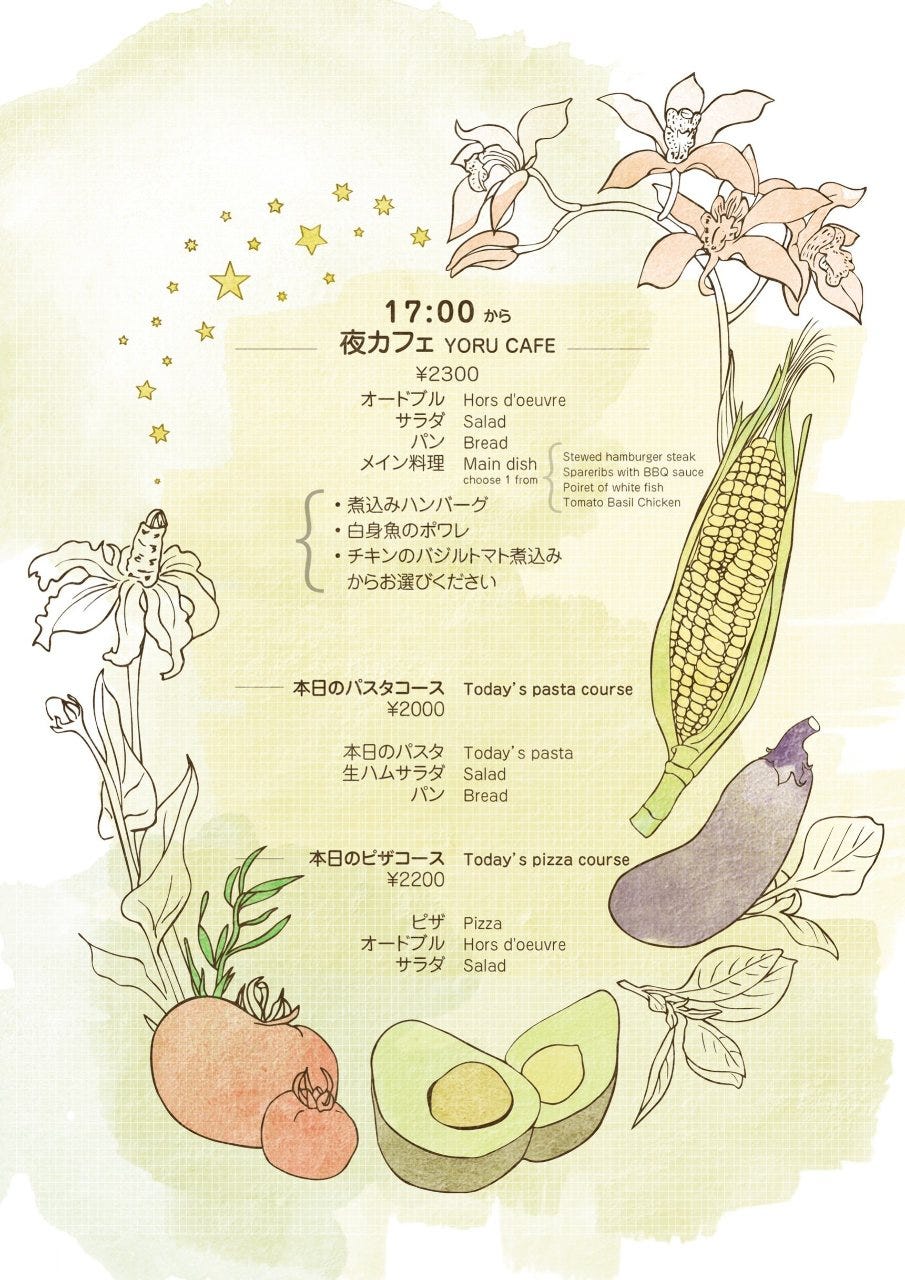 17:00 から
夜カフェ YORU CAFE
¥2300
オードブル Hors d'oeuvre
サラダ Salad
パン Bread
メイン料理 Main dish
choose 1 from
Stewed hamburger steak
Spareribs with BBQ sauce
Poiret of white fish
Tomato Basil Chicken
・煮込みハンバーグ
・白身魚のポワレ
・チキンのバジルトマト煮込み
からお選びください
本日のパスタコース Today's pasta course
¥2000
本日のパスタ Today's pasta
生ハムサラダ Salad
パン Bread
本日のピザコース Today's pizza course
¥2200
ピザ Pizza
オードブル Hors d'oeuvre
サラダ Salad